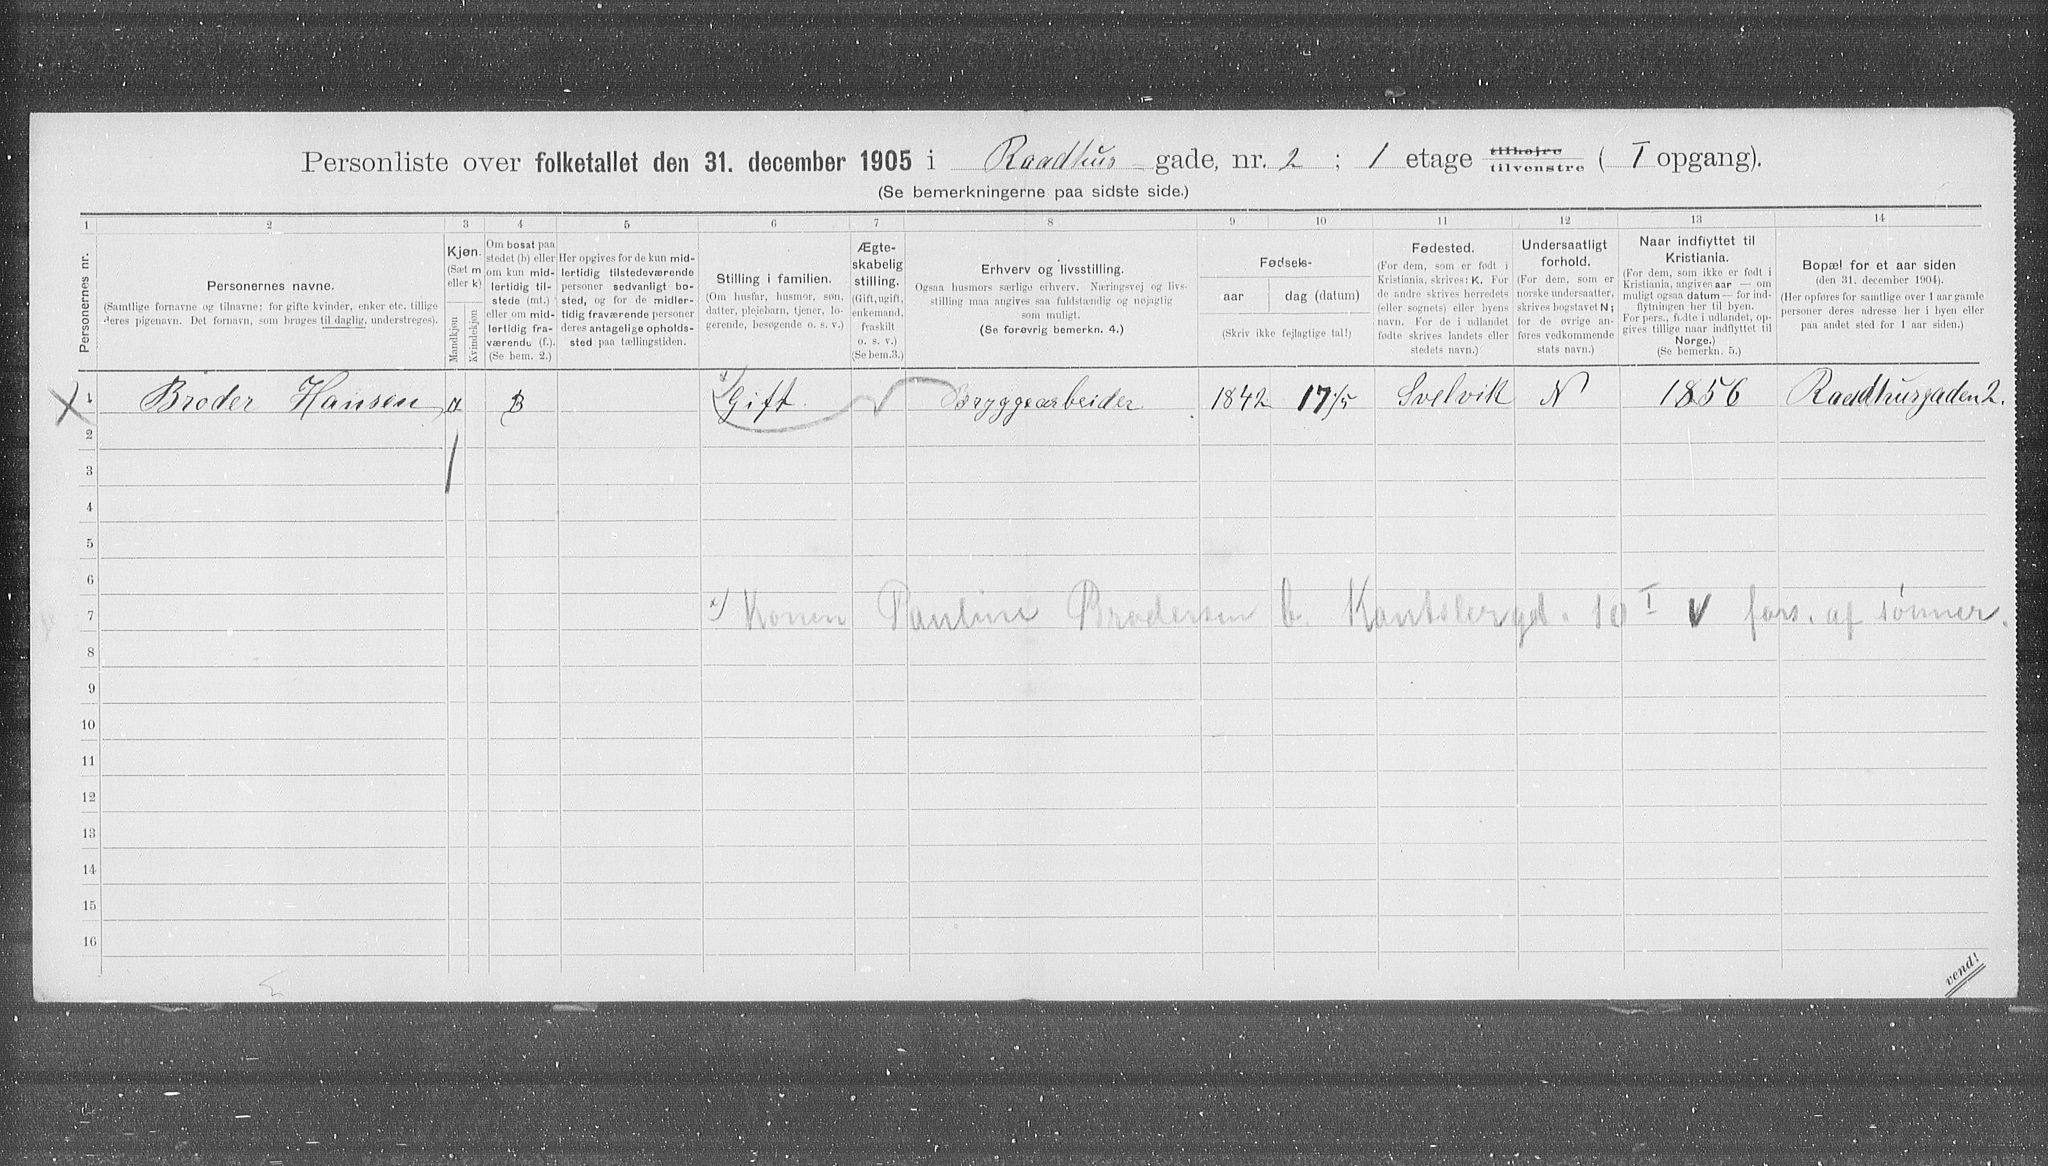 Personliste over folketallet den 31. december 1905 i Raadhus gade, nr. 2 ; 1 etage tilhøjre tilvenstre ( I opgang).
(Se bemerkningerne paa sidste side.)
1 2 3 4 5 6 7 8 9 10 11 12 13 14
Personernes nr.
Personernes navne.
(Samtlige fornavne og tilnavne; for gifte kvinder, enker etc. tillige
deres pigenavn. Det fornavn, som bruges til daglig, understreges).
Kjøn.
(Sæt m
eller k)
Mandkjøn
Kvindekjøn
Om bosat paa
stedet (b) eller
om kun mid-
lertidig til-
stede (mt.)
eller om mid-
lertidig fra-
værende (f.).
(Se bem. 2.)
Her opgives for de kun mid-
lertidig tilstedeværende
personer sedvanligt bo-
sted, og for de midler-
tidig fraværende personer
deres antagelige opholds-
sted paa tællingstiden.
Stilling i familien.
(Om husfar, husmor, søn,
datter, plejebarn, tjener, lo-
gerende, besøgende o. s. v.)
Ægte-
skabelig
stilling.
(Gift, ugift,
enkemand,
fraskilt
o. s. v.)
(Se bem.3.)
Erhverv og livsstilling.
Ogsaa husmors særlige erhverv. Næringsvej og livs-
stilling maa angives saa fuldstændig og nøjagtig
som muligt.
(Se forøvrig bemerkn. 4.)
Fødsels-
aar
dag (datum)
(Skriv ikke fejlagtige tal!)
Fødested.
(For dem, som er født i
Kristiania, skrives: K. For
de andre skrives herredets
(eller sognets) eller byens
navn. For de i udlandet
fødte skrives landets eller
stedets navn.)
Undersaatligt
forhold.
(For dem, som er
norske undersaatter,
skrives bogstavet N;
for de øvrige an-
føres vedkommende
stats navn.)
Naar indflyttet til
Kristiania.
(For dem, som ikke er født i
Kristiania, angives aar — om
muligt ogsaa datum — for ind-
flytningen her til byen.
For pers., fødte i udlandet, op-
gives tillige naar indflyttet til
Norge.)
(Se bemerkn. 5.)
Bopæl for et aar siden
(den 31. december 1904).
(Her opføres for samtlige over 1 aar gamle
personer deres adresse her i byen eller
paa andet sted for 1 aar siden.)
1 Broder Hansen m B x) Gift Bryggearbeider 1842 17/5 Svelvik N 1856 Raadhusgaden 2.
2
3
4
5
6
7 x) Konen Pauline Brodersen b. Kantslergd. 10 I v fors. af sønner.
8
9
10
11
12
13
14
15
16
vend!